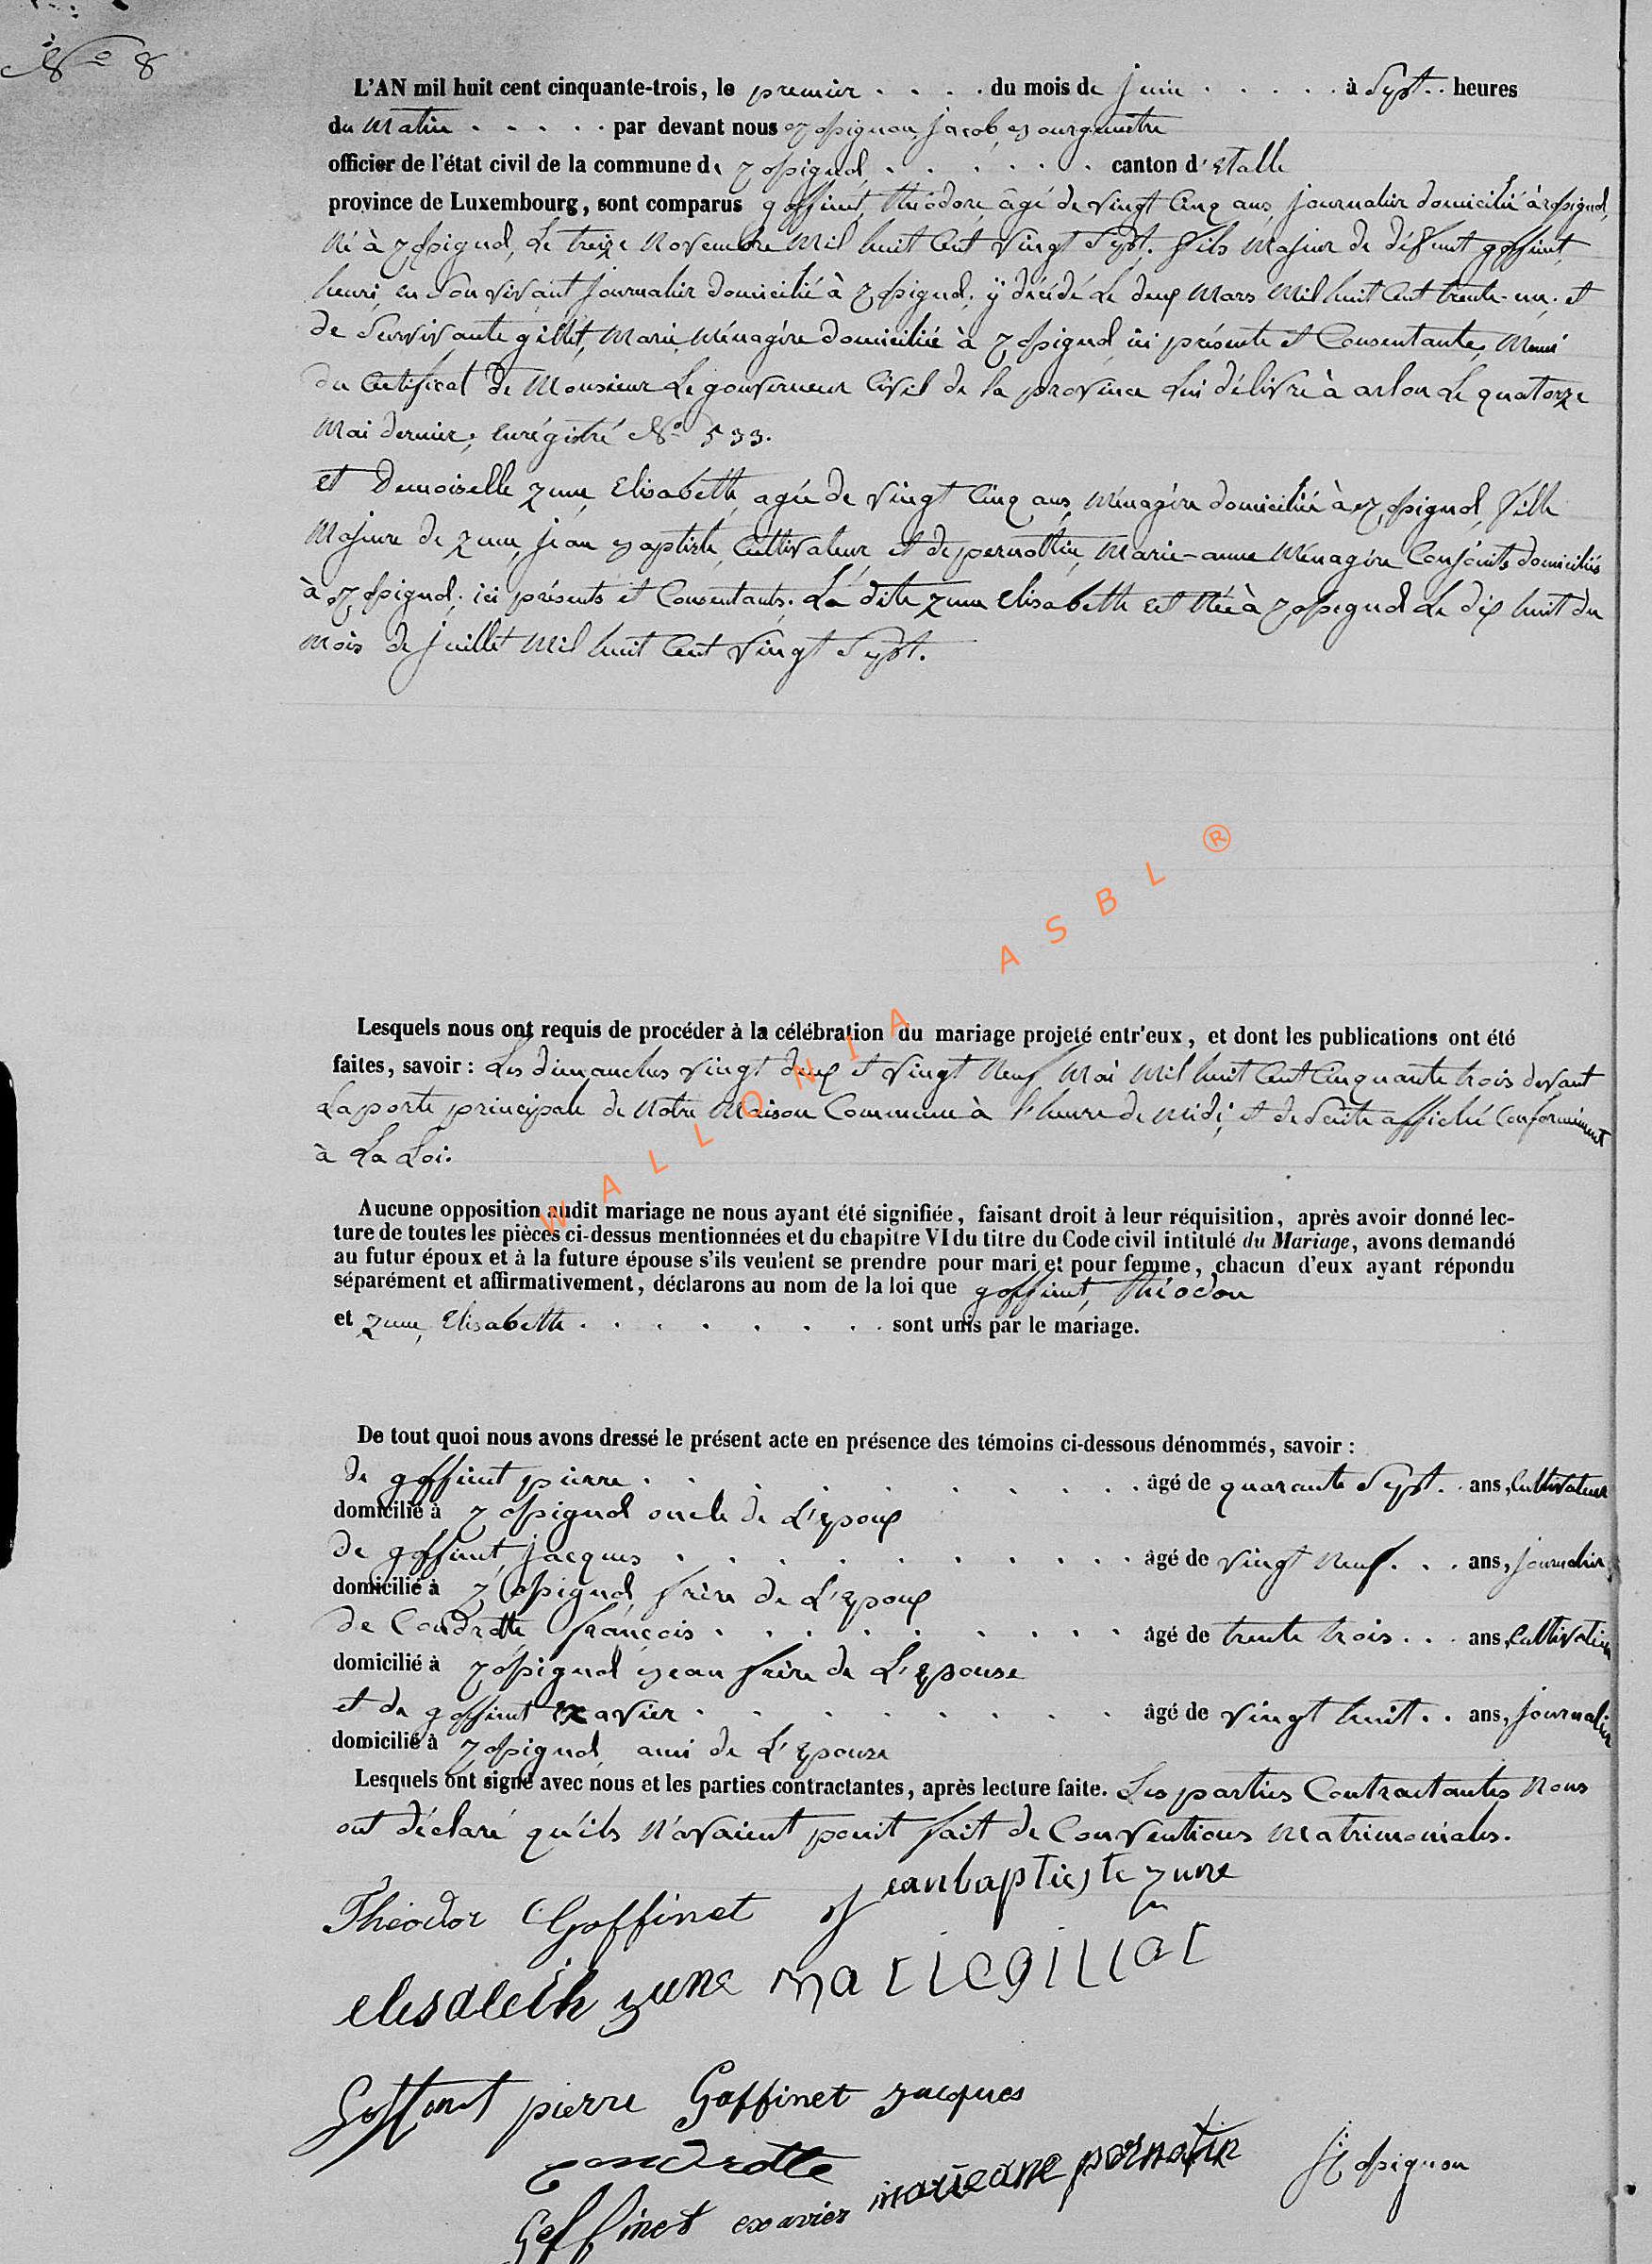 No 8
L'AN mil huit cent cinquante-trois, le premier . . . . du mois de juin . . . . . à Sept . . heures
du matin . . . . . par devant nous Rossignon, Jacob, Bourgmestre
officier de l'état civil de la commune de Rossignol . . . . . . canton d'Etalle
province de Luxembourg, sont comparus goffinet, théodore, âgé de vingt cinq ans, journalier domicilié à Rossignol,
Né à Rossignol, Le treize Novembre Mil huit Cent Vingt Sept. fils Majeur de défunt goffinet,
henri, en son vivant journalier domicilié à Rossignol, ÿ décédé Le deux Mars Mil huit Cent trente-un, et
de Survivante gillet, Marie, Ménagère domiciliée à Rossignol, ici présente et Consentante, Muni
du Certificat de Monsieur Le gouverneur Civil de la province Lui délivré à arlon Le quatorze
Mai dernier, enrégistré No 533.
et Demoiselle zune, Elisabeth, agée de vingt Cinq ans, Ménagère domiciliée à Rossignol, fille
Majeure de zune, jean Baptiste, Cultivateur, et de pernottin, Marie-anne Ménagère Conjoints domiciliés
à Rossignol, ici présents et Consentants. La dite zune Elisabeth est Née à Rossignol Le dix huit du
mois de juillet Mil huit Cent Vingt Sept.
Lesquels nous ont requis de procéder à la célébration du mariage projeté entr'eux, et dont les publications ont été
faites, savoir : Les dimanches vingt deux et Vingt Neuf Mai Mil huit Cent Cinquante trois devant
La porte principale de Notre Maison Commune à l'heure de Midi, et de Suite affiché Conformément
à La Loi.
Aucune opposition audit mariage ne nous ayant été signifiée, faisant droit à leur réquisition, après avoir donné lec-
ture de toutes les pièces ci-dessus mentionnées et du chapitre VI du titre du Code civil intitulé du Mariage, avons demandé
au futur époux et à la future épouse s'ils veulent se prendre pour mari et pour femme, chacun d'eux ayant répondu
séparément et affirmativement, déclarons au nom de la loi que goffinet, théodore
et zune, Elisabeth . . . . . . . . sont unis par le mariage.
De tout quoi nous avons dressé le présent acte en présence des témoins ci-dessous dénommés, savoir :
de goffinet pierre . . . . . . . . . âgé de quarante Sept . . ans, Cultivateur
domicilié à Rossignol oncle de L'Epoux
de goffinet, jacques . . . . . . . . . . âgé de vingt Neuf . . . ans, journalier
domicilié à Rossignol, frère de L'Epoux
de Condrotte, françois . . . . . . . . . âgé de trente trois . . . ans, Cultivateur
domicilié à Rossignol Beau frère de L'Epouse
et de goffinet Exavier . . . . . . . . . âgé de vingt huit . . ans, journalier
domicilié à Rossignol, ami de L'Epouse
Lesquels ont signé avec nous et les parties contractantes, après lecture faite. Les parties Contractantes Nous
ont déclaré qu'ils N'avaient point fait de Conventions Matrimoniales.
Théodor Goffinet Jeanbaptieste zune
elisabeth zune mariegillet
Goffinet pierre Goffinet Jacques
Condrotte
Goffinet exavier marieane pernotin JRossignon
WALLONIA ASBL ®